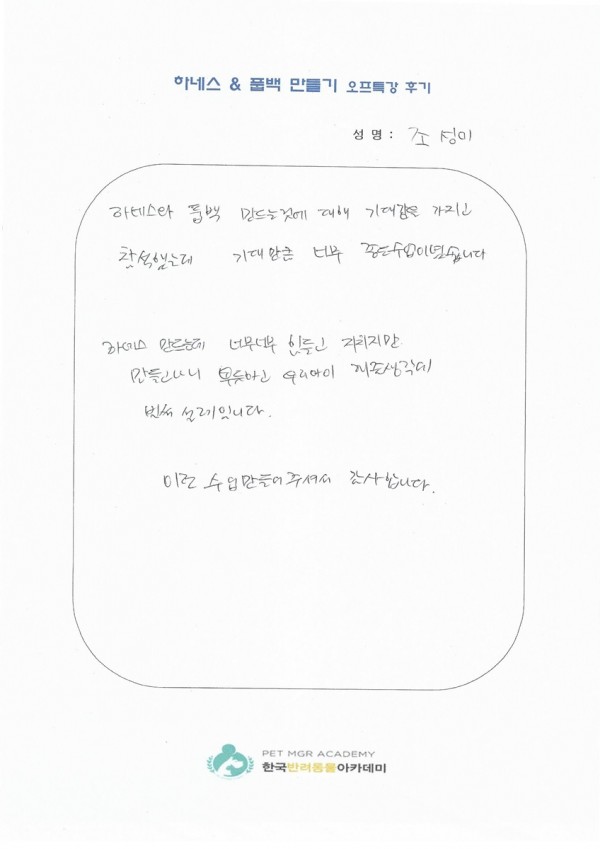 하네스 & 풉백 만들기 오프특강 후기
성 명 : 조 성미
하네스와 풉백 만드는것에 대해 기대감을 가지고
참석했는데 기대만큼 너무 좋은수업이였습니다
하네스 만드는데 너무너무 힘들고 지치지만
만들고나니 뿌듯하고 우리아이 채울생각에
벌써 설레입니다.
이런 수업만들어주셔서 감사합니다.
PET MGR ACADEMY
한국반려동물아카데미